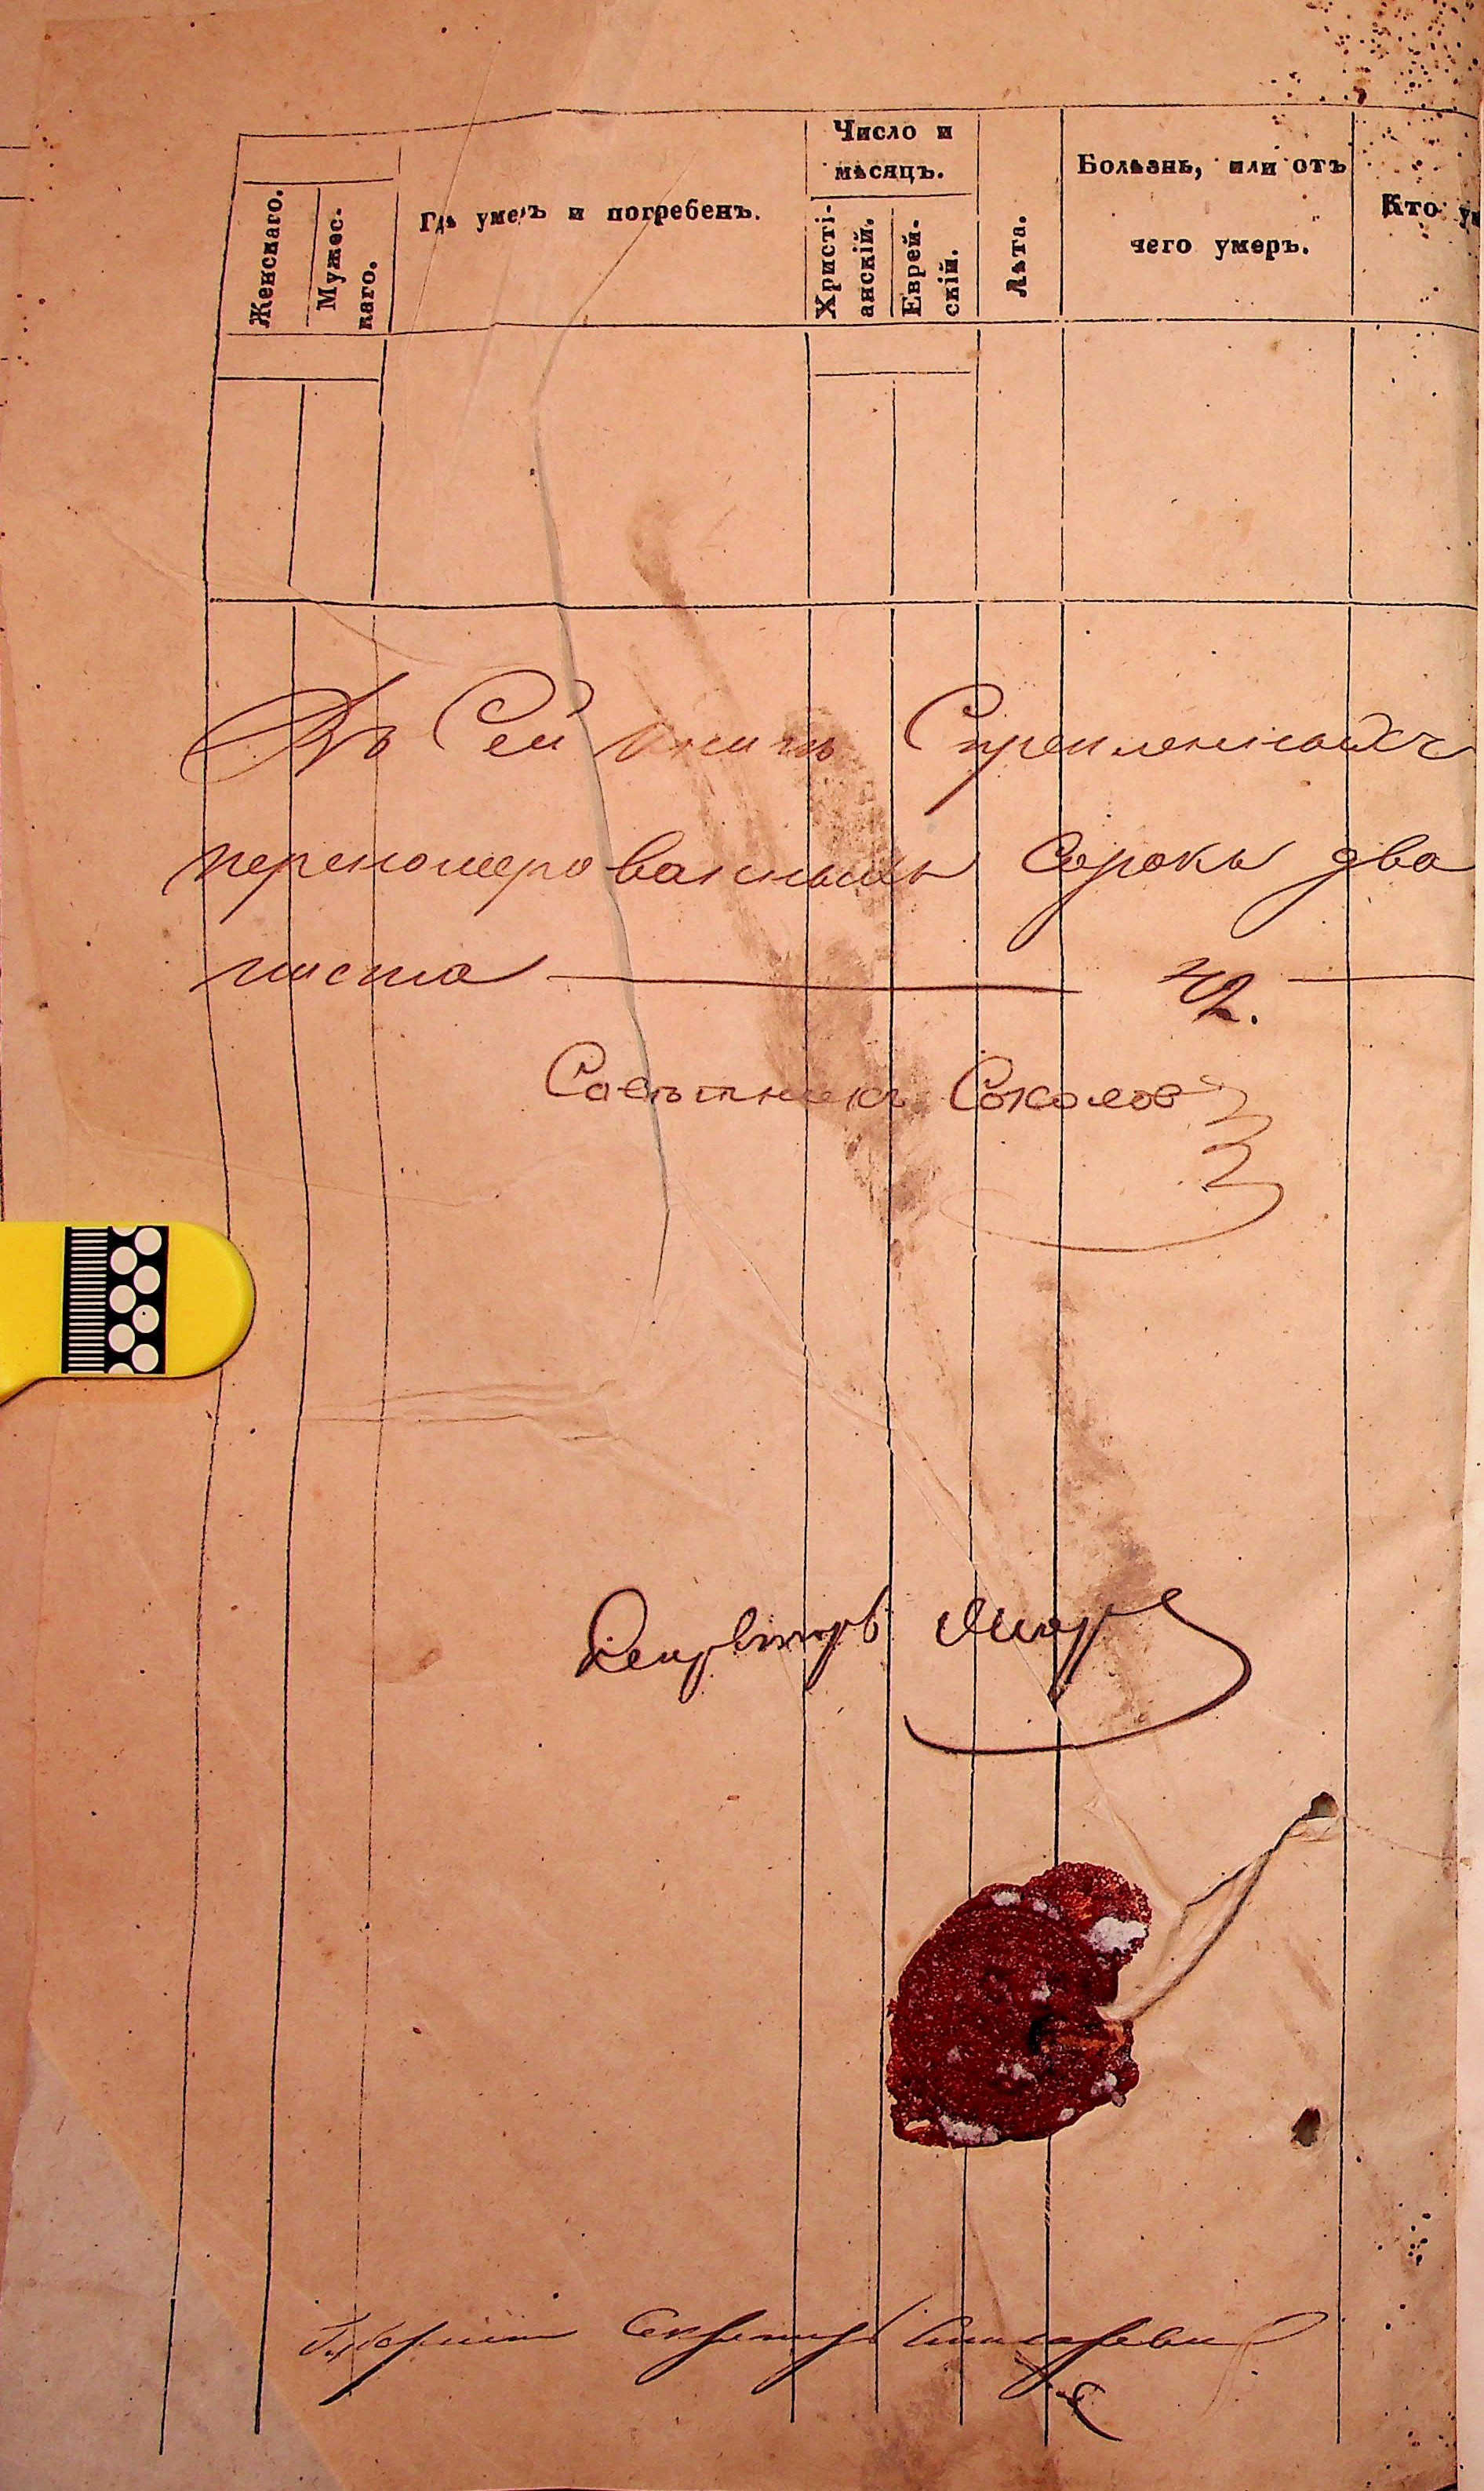 Женскаго.
Мужес-
каго.
Гдѣ умеръ и погребенъ.
Число и
мѣсяцъ.
Христі-
анскій.
Еврей-
скій.
Лѣта.
Болѣзнь, или отъ
чего умеръ.
Кто ум
Въ Сей книгѣ Скрепленныхъ
перенумерованныхъ Сорокъ два
листа 42.
Совѣтникъ Соколов
Секретарь